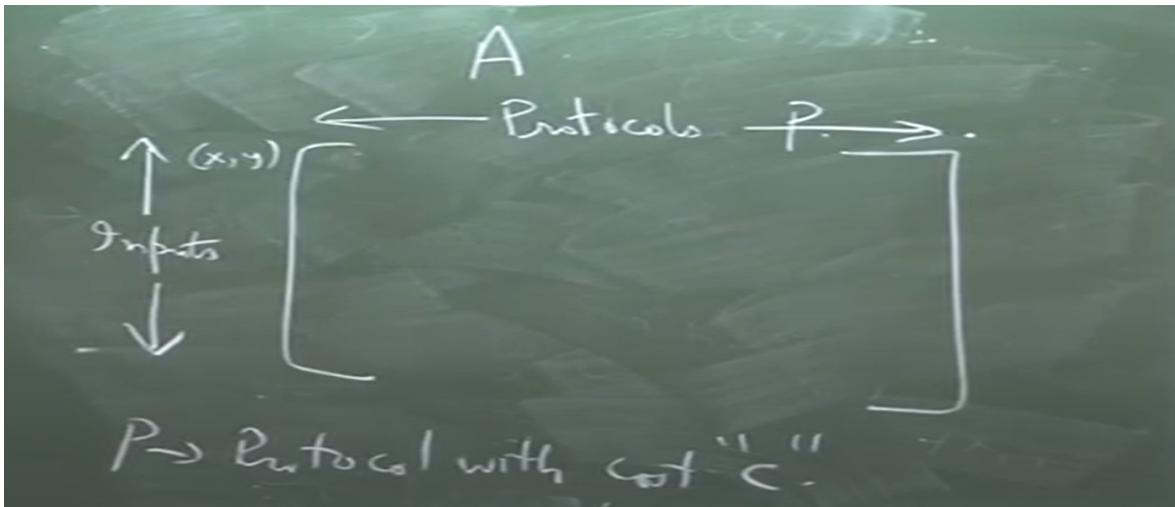 A
Protocols P.
(x,y)
Inputs
P → Protocol with cost "c".